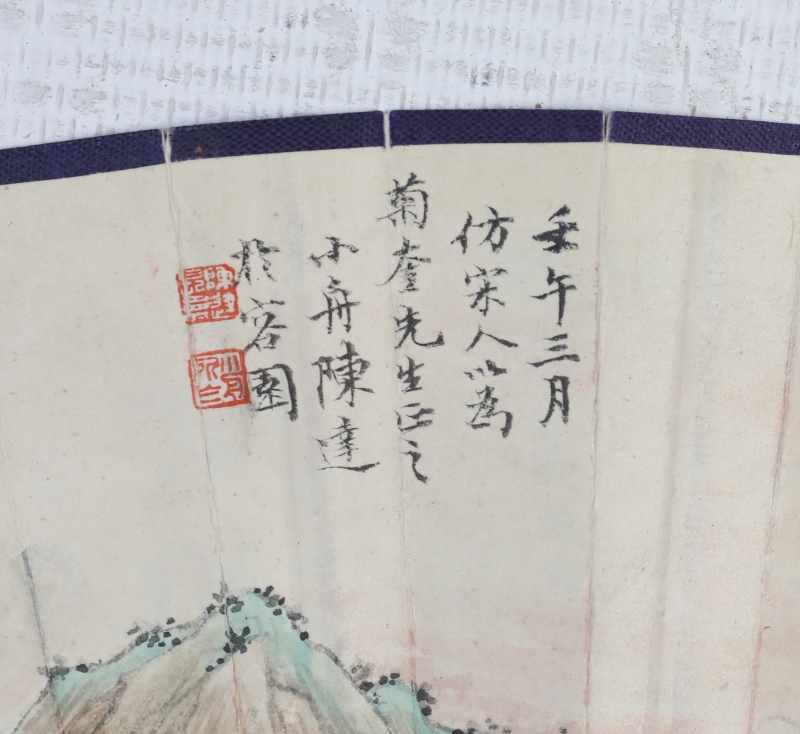 壬午三月
仿宋人以為
菊奎先生正之
小舟陳達
於容園